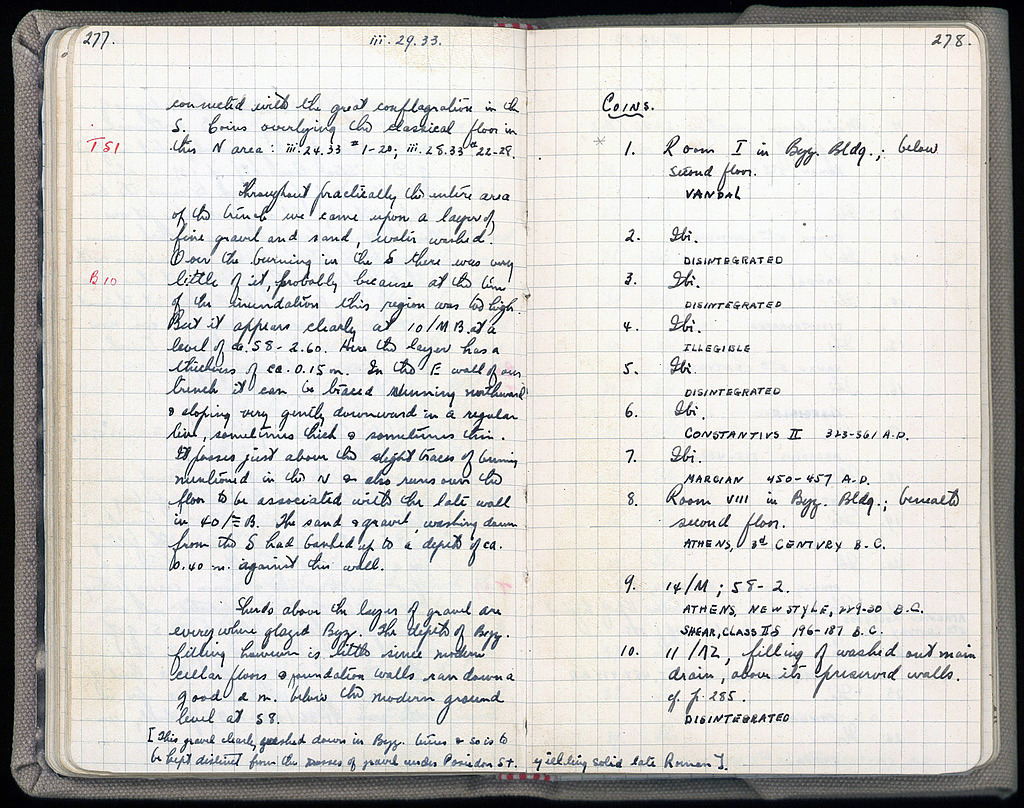 277.
iii. 29. 33.
connected with the great conflagration in the
S. Coins overlying the classical floor in
T S1
this N area: iii. 24.33 # 1-20; iii. 28.33 # 22-28.
Throughout practically the entire area
of the trench we came upon a layer of
fine gravel and sand, water washed.
Over the burning in the S there was very
B 10
little of it, probably because at the time
of the inundation this region was too high.
But it appears clearly at 10/MB at a
level of ca. 58 - 2.60. Here the layer has a
thickness of ca. 0.15 m. In the E wall of our
trench it can be traced running northward
& sloping very gently downward in a regular
line, sometimes thick & sometimes thin.
It passes just above the slight traces of burning
mentioned in the N & also runs over the
floor to be associated with the late wall
in 40/ B. The sand & gravel, washing down
from the S had banked up to a depth of ca.
0.40 m. against this wall.
Sherds above the layer of gravel are
everywhere glazed Byz. The depth of Byz.
filling however is little since modern
cellar floors & foundation walls ran down a
good 2 m. below the modern ground
level at 58.
[This gravel clearly washed down in Byz. times & so is to
be kept distinct from the masses of gravel under Poseidon St. yielding solid late Roman].
278.
COINS.
* 1. Room I in Byz. Bldg.; below
second floor.
VANDAL
2. Ibi.
DISINTEGRATED
3. Ibi.
DISINTEGRATED
4. Ibi.
ILLEGIBLE
5. Ibi.
DISINTEGRATED
6. Ibi.
CONSTANTIVS II 323-361 A.D.
7. Ibi.
MARCIAN 450-457 A.D.
8. Room VIII in Byz. Bldg.; beneath
second floor.
ATHENS, 3d CENTVRY B.C.
9. 14/M; 58-2.
ATHENS, NEW STYLE, 229-30 B.C.
SHEAR, CLASS II S 196-187 B.C.
10. 11/ filling of washed out main
drain, above its preserved walls.
cf. p. 285.
DISINTEGRATED